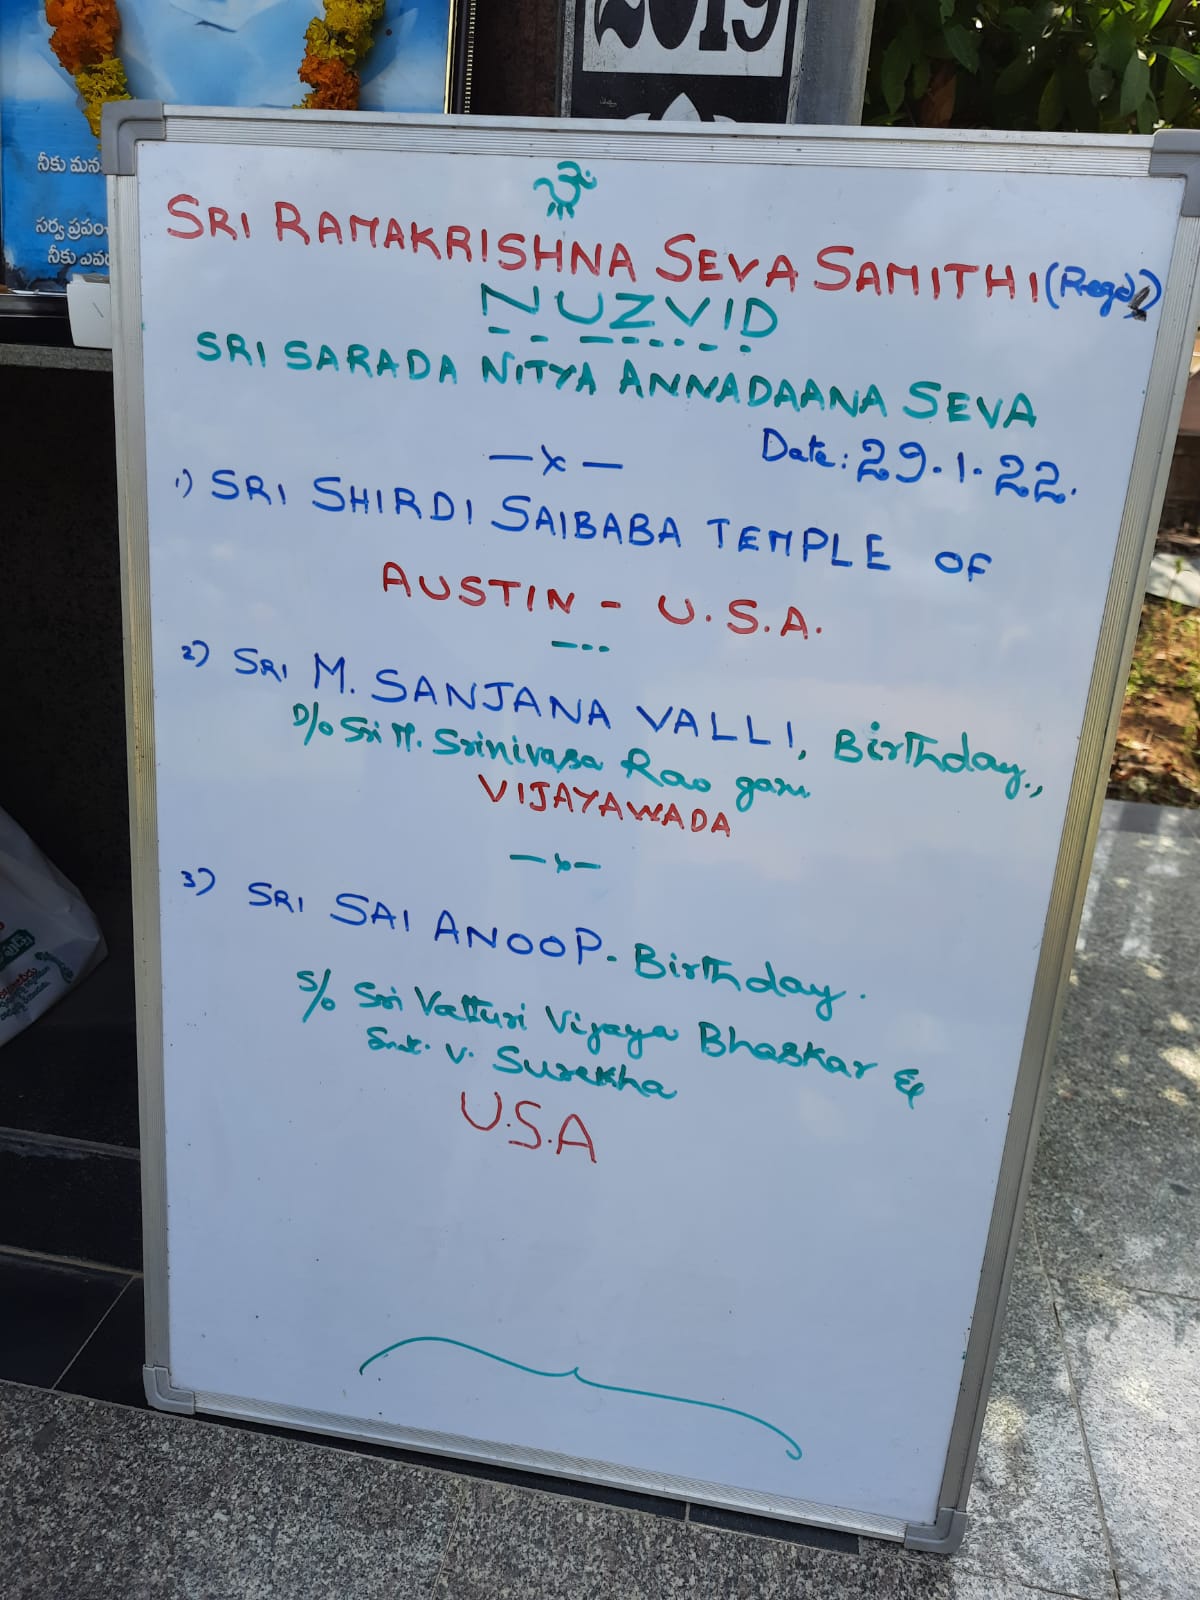 2019
నీకు
సర్వ
నీకు
శ్రీ
SRI RAMAKRISHNA SEVA SAMITHI (Regd)
NUZVID
SRI SARADA NITYA ANNADAANA SEVA
Date: 29.1.22.
—x—
1) SRI SHIRDI SAIBABA TEMPLE OF
AUSTIN - U.S.A.
2) SRI M. SANJANA VALLI, Birthday.,
D/o Sri M. Srinivasa Rao garu
VIJAYAWADA
—x—
3) SRI SAI ANOOP. Birthday.
S/o Sri Vatturi Vijaya Bhaskar &
Smt. V. Surekha
U.S.A